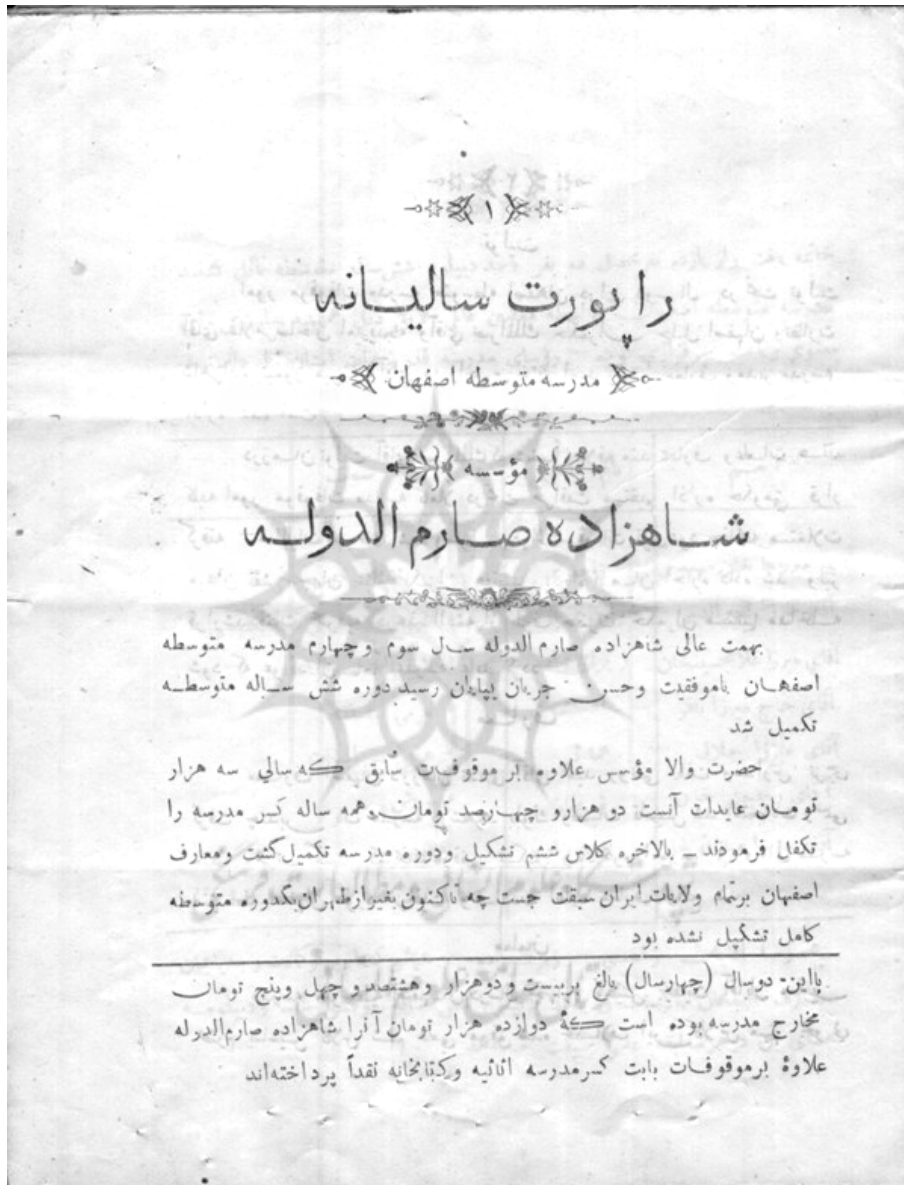 ۱
راپورت سالیانه
مدرسه متوسطه اصفهان
مؤسسه
شاهزاده صارم الدوله
بهمت عالی شاهزاده صارم الدوله سال سوم و چهارم مدرسه متوسطه
اصفهان باموفقیت وحسن جریان بپایان رسید دوره شش ساله متوسطه
تکمیل شد
حضرت والا مؤسس علاوه بر موقوفات سابق که سالي سه هزار
تومان عایدات آنست دو هزارو چهارصد تومان همه ساله کسر مدرسه را
تکفل فرمودند – بالاخره کلاس ششم تشکیل ودوره مدرسه تکمیل گشت ومعارف
اصفهان برتمام ولایات ایران سبقت جست چه تاکنون بغیرازطهران یکدوره متوسطه
کامل تشکیل نشده بود
بااین دوسال (چهارسال) بالغ بربیست ودوهزار وهشتصدو چهل وپنج تومان
مخارج مدرسه بوده است که دوازده هزار تومان آنرا شاهزاده صارم‌الدوله
علاوهٔ برموقوفات بابت کسرمدرسه اثاثیه وکتابخانه نقداً پرداخته‌اند